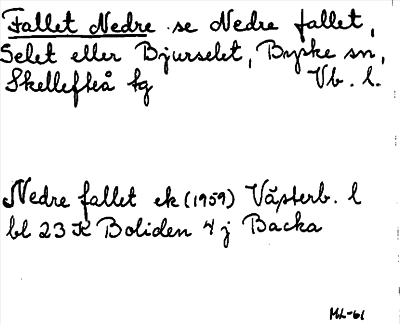 Fallet Nedre se Nedre fallet,
Selet eller Bjurselet, Byske sn,
Skellefteå tg Vb. l.
Nedre fallet ek (1959) Västerb. l
bl 23 K Boliden 4 j Backa
ML-61